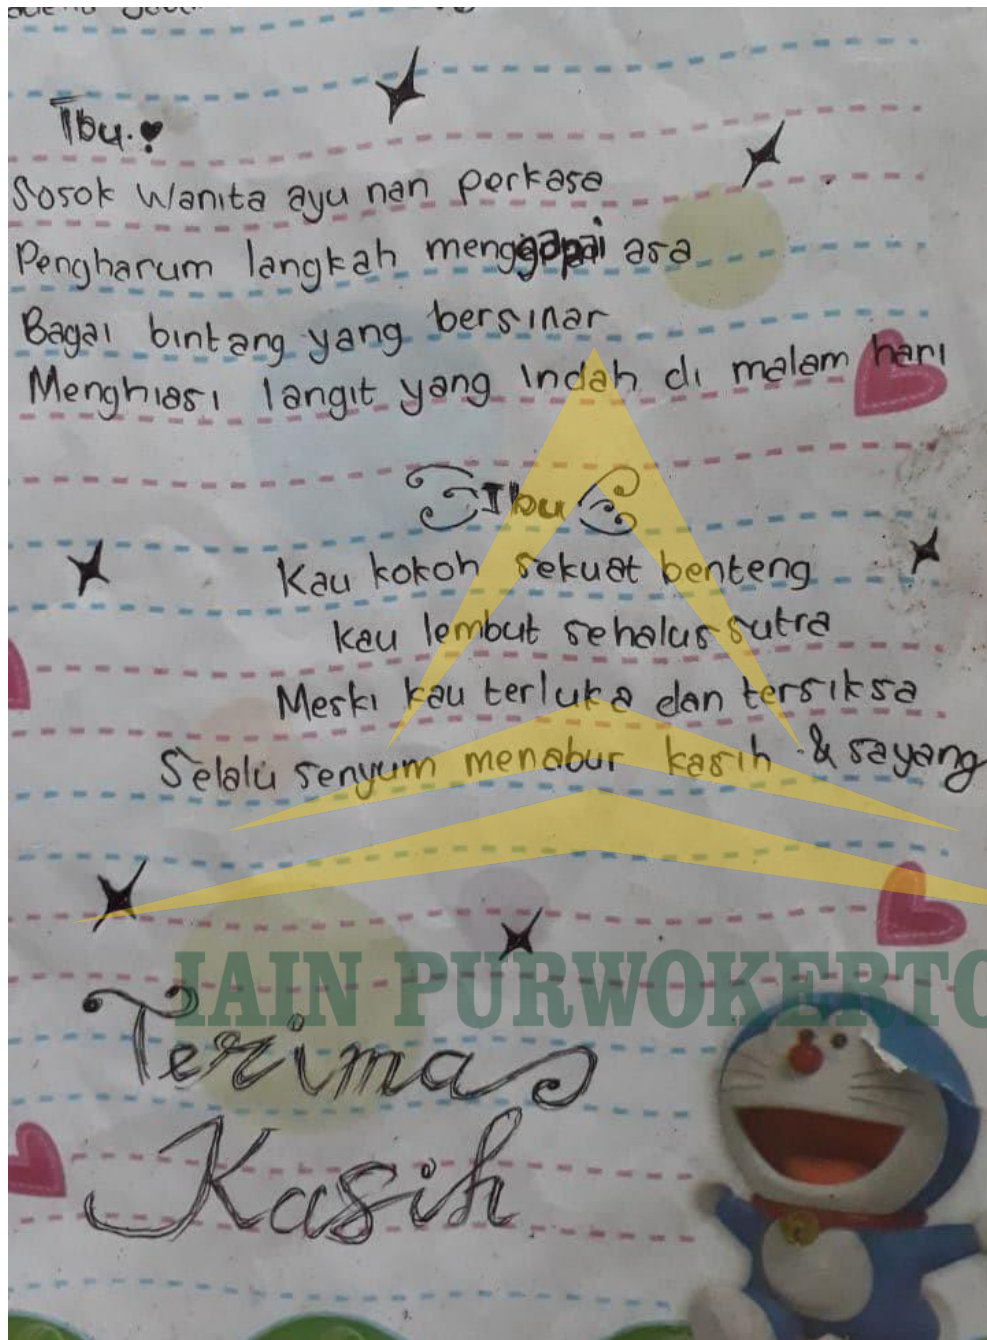 Ibu.♥
Sosok Wanita ayu nan perkasa
Pengharum langkah menggapai asa
Bagai bintang yang bersinar
Menghiasi langit yang indah di malam hari
Ibu
Kau kokoh sekuat benteng
Kau lembut sehalus sutra
Meski kau terluka dan tersiksa
Selalu senyum menabur kasih & sayang
IAIN PURWOKERTO
Terima
Kasih